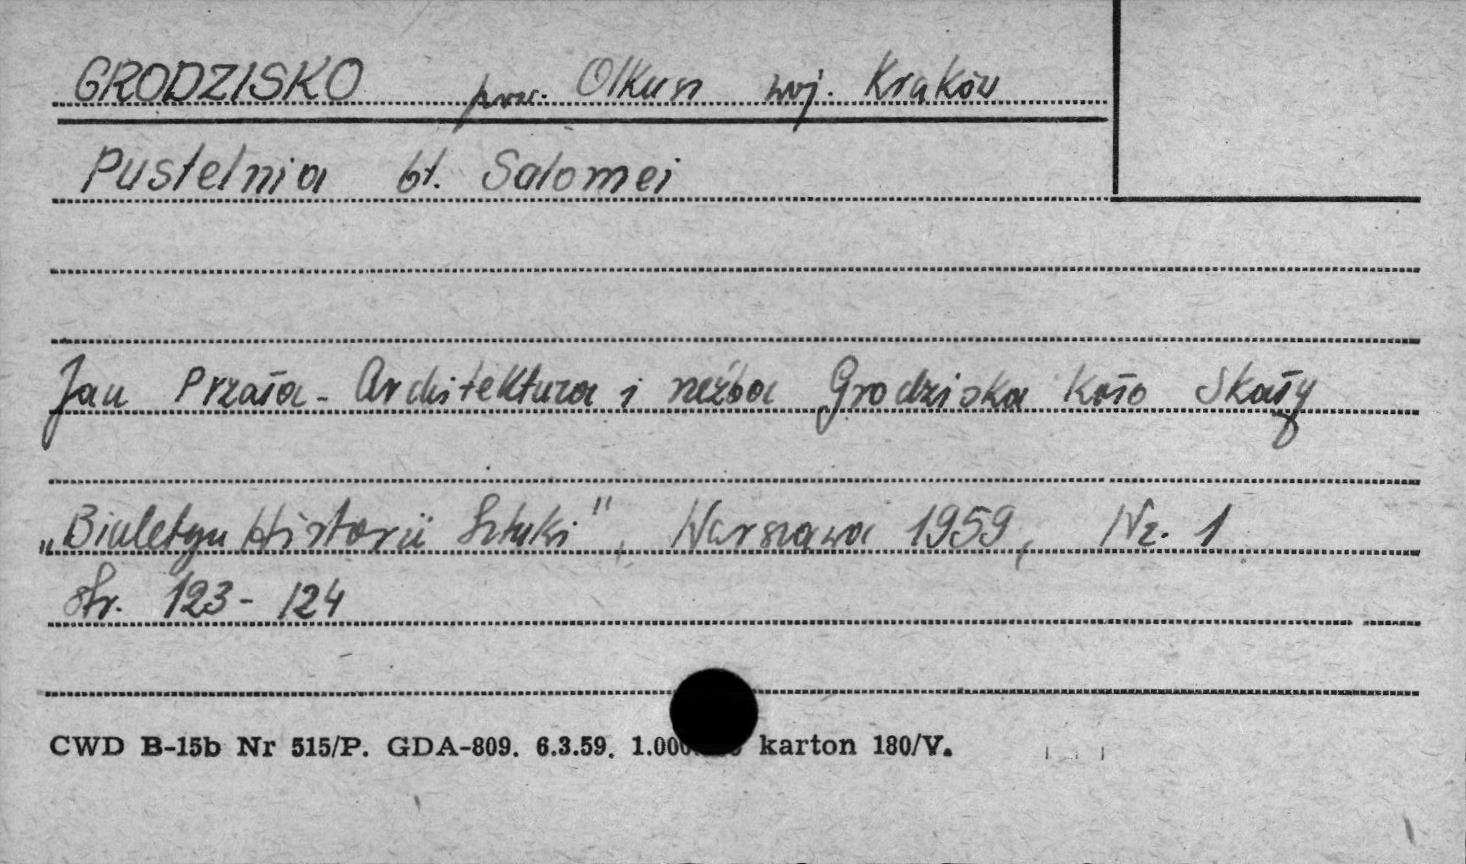 GRODZISKO pow. Olkusz woj. Kraków
Pustelnia bł. Salomei
Jan Przała - Architektura i rzeźba Grodziska koło Skały
„Biuletyn Historii Sztuki", Warszawa 1959, Nr. 1
str. 123-124
CWD B-15b Nr 515/P. GDA-809. 6.3.59. karton 180/V.